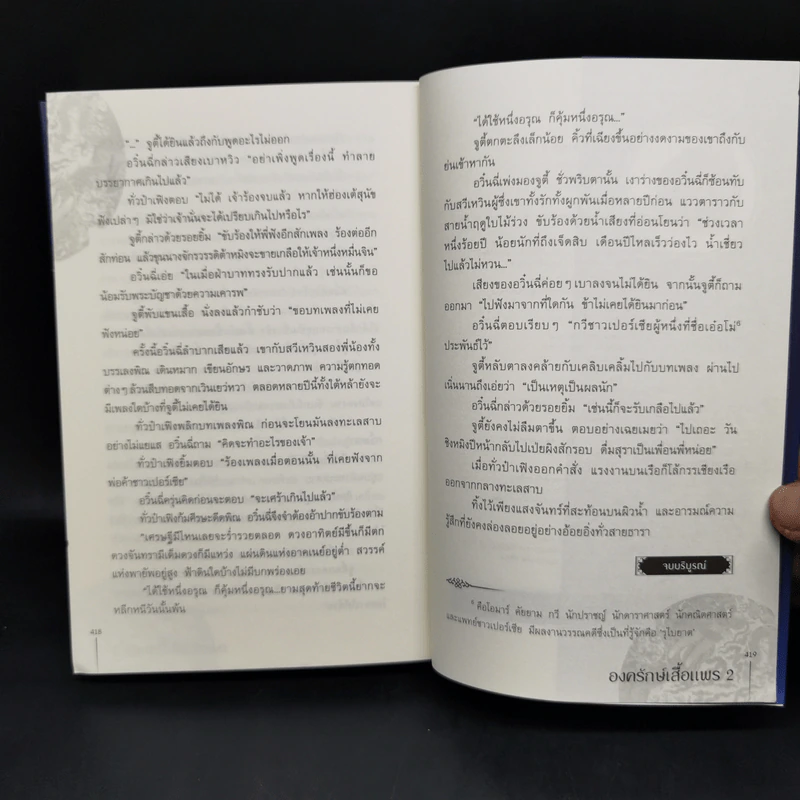 "..." จูตี้ได้ยินแล้วถึงกับพูดอะไรไม่ออก
อวิ๋นฉี่กล่าวเสียงเบาหวิว "อย่าเพิ่งพูดเรื่องนี้ ทำลาย
บรรยากาศเกินไปแล้ว"
ทั่วป๋าเฟิงตอบ "ไม่ได้ เจ้าร้องจบแล้ว หากให้ฮ่องเต้สุนัข
ฟังเปล่าๆ มิใช่ว่าเจ้านั่นจะได้เปรียบเกินไปหรือไร"
จูตี้กล่าวด้วยรอยยิ้ม "ขับร้องให้พี่ฟังอีกสักเพลง ร้องต่ออีก
สักท่อน แล้วขุนนางจักรวรรดิต้าหมิงจะขายเกลือให้เจ้าหนึ่งหมื่นจิน"
อวิ๋นฉี่เอ่ย "ในเมื่อฝ่าบาททรงรับปากแล้ว เช่นนั้นก็ขอ
น้อมรับพระบัญชาด้วยความเคารพ"
จูตี้พับแขนเสื้อ นั่งลงแล้วกำชับว่า "ขอบทเพลงที่ไม่เคย
ฟังหน่อย"
ครั้งนี้อวิ๋นฉี่ลำบากเสียแล้ว เขากับสวีเหวินสองพี่น้องทั้ง
บรรเลงพิณ เดินหมาก เขียนอักษร และวาดภาพ ความรู้ตกทอด
ต่างๆ ล้วนสืบทอดจากเวินเยว่หวา ตลอดหลายปีนี้ทั้งใต้หล้ายังจะ
มีเพลงใดบ้างที่จูตี้ไม่เคยได้ยิน
ทั่วป๋าเฟิงพลิกบทเพลงพิณ ก่อนจะโยนมันลงทะเลสาบ
อย่างไม่แยแส อวิ๋นฉี่ถาม "คิดจะทำอะไรของเจ้า"
ทั่วป๋าเฟิงยิ้มตอบ "ร้องเพลงเมื่อตอนนั้น ที่เคยฟังจาก
พ่อค้าชาวเปอร์เซีย"
อวิ๋นฉี่ครุ่นคิดก่อนจะตอบ "จะเศร้าเกินไปแล้ว"
ทั่วป๋าเฟิงก้มศีรษะดีดพิณ อวิ๋นฉี่จึงจำต้องอ้าปากขับร้องตาม
"เศรษฐีมีไหนเลยจะร่ำรวยตลอด ดวงอาทิตย์มีขึ้นก็มีตก
ดวงจันทรามีเต็มดวงก็มีแหว่ง แผ่นดินแห่งอาคเนย์อยู่ต่ำ สวรรค์
แห่งพายัพอยู่สูง ฟ้าดินใดบ้างไม่มีบกพร่องเอย
"ได้ใช้หนึ่งอรุณ ก็คุ้มหนึ่งอรุณ...ยามสุดท้ายชีวิตนี้ยากจะ
หลีกหนีวันนั้นพ้น
418
"ได้ใช้หนึ่งอรุณ ก็คุ้มหนึ่งอรุณ..."
จูตี้ตกตะลึงเล็กน้อย คิ้วที่เฉียงขึ้นอย่างงดงามของเขาถึงกับ
ย่นเข้าหากัน
อวิ๋นฉี่เพ่งมองจูตี้ ชั่วพริบตานั้น เงาร่างของอวิ๋นฉี่ก็ซ้อนทับ
กับสวีเหวินผู้ซึ่งเขาทั้งรักทั้งผูกพันเมื่อหลายปีก่อน แววตาราวกับ
สายน้ำฤดูใบไม้ร่วง ขับร้องด้วยน้ำเสียงที่อ่อนโยนว่า "ช่วงเวลา
หนึ่งร้อยปี น้อยนักที่ถึงเจ็ดสิบ เดือนปีไหลเร็วว่องไว น้ำเชี่ยว
ไปแล้วไม่หวน..."
เสียงของอวิ๋นฉี่ค่อยๆ เบาลงจนไม่ได้ยิน จากนั้นจูตี้ก็ถาม
ออกมา "ไปฟังมาจากที่ใดกัน ข้าไม่เคยได้ยินมาก่อน"
อวิ๋นฉี่ตอบเรียบๆ "กวีชาวเปอร์เซียผู้หนึ่งที่ชื่อเอ๋อโม่⁶
ประพันธ์ไว้"
จูตี้หลับตาลงคล้ายกับเคลิบเคลิ้มไปกับบทเพลง ผ่านไป
เนิ่นนานถึงเอ่ยว่า "เป็นเหตุเป็นผลนัก"
อวิ๋นฉี่กล่าวด้วยรอยยิ้ม "เช่นนี้ก็จะรับเกลือไปแล้ว"
จูตี้ยังคงไม่ลืมตาขึ้น ตอบอย่างเฉยเมยว่า "ไปเถอะ วัน
ชิงหมิงปีหน้ากลับไปเป่ยผิงสักรอบ ดื่มสุราเป็นเพื่อนพี่หน่อย"
เมื่อทั่วป๋าเฟิงออกคำสั่ง แรงงานบนเรือก็โล้กรรเชียงเรือ
ออกจากกลางทะเลสาบ
ทิ้งไว้เพียงแสงจันทร์ที่สะท้อนบนผิวน้ำ และอารมณ์ความ
รู้สึกที่ยังคงล่องลอยอยู่อย่างอ้อยอิ่งทั่วสายธารา
จบบริบูรณ์
⁶ คือโอมาร์ คัยยาม กวี นักปราชญ์ นักดาราศาสตร์ นักคณิตศาสตร์
และแพทย์ชาวเปอร์เซีย มีผลงานวรรณคดีซึ่งเป็นที่รู้จักคือ 'รุไบยาต'
419
องครักษ์เสื้อแพร 2